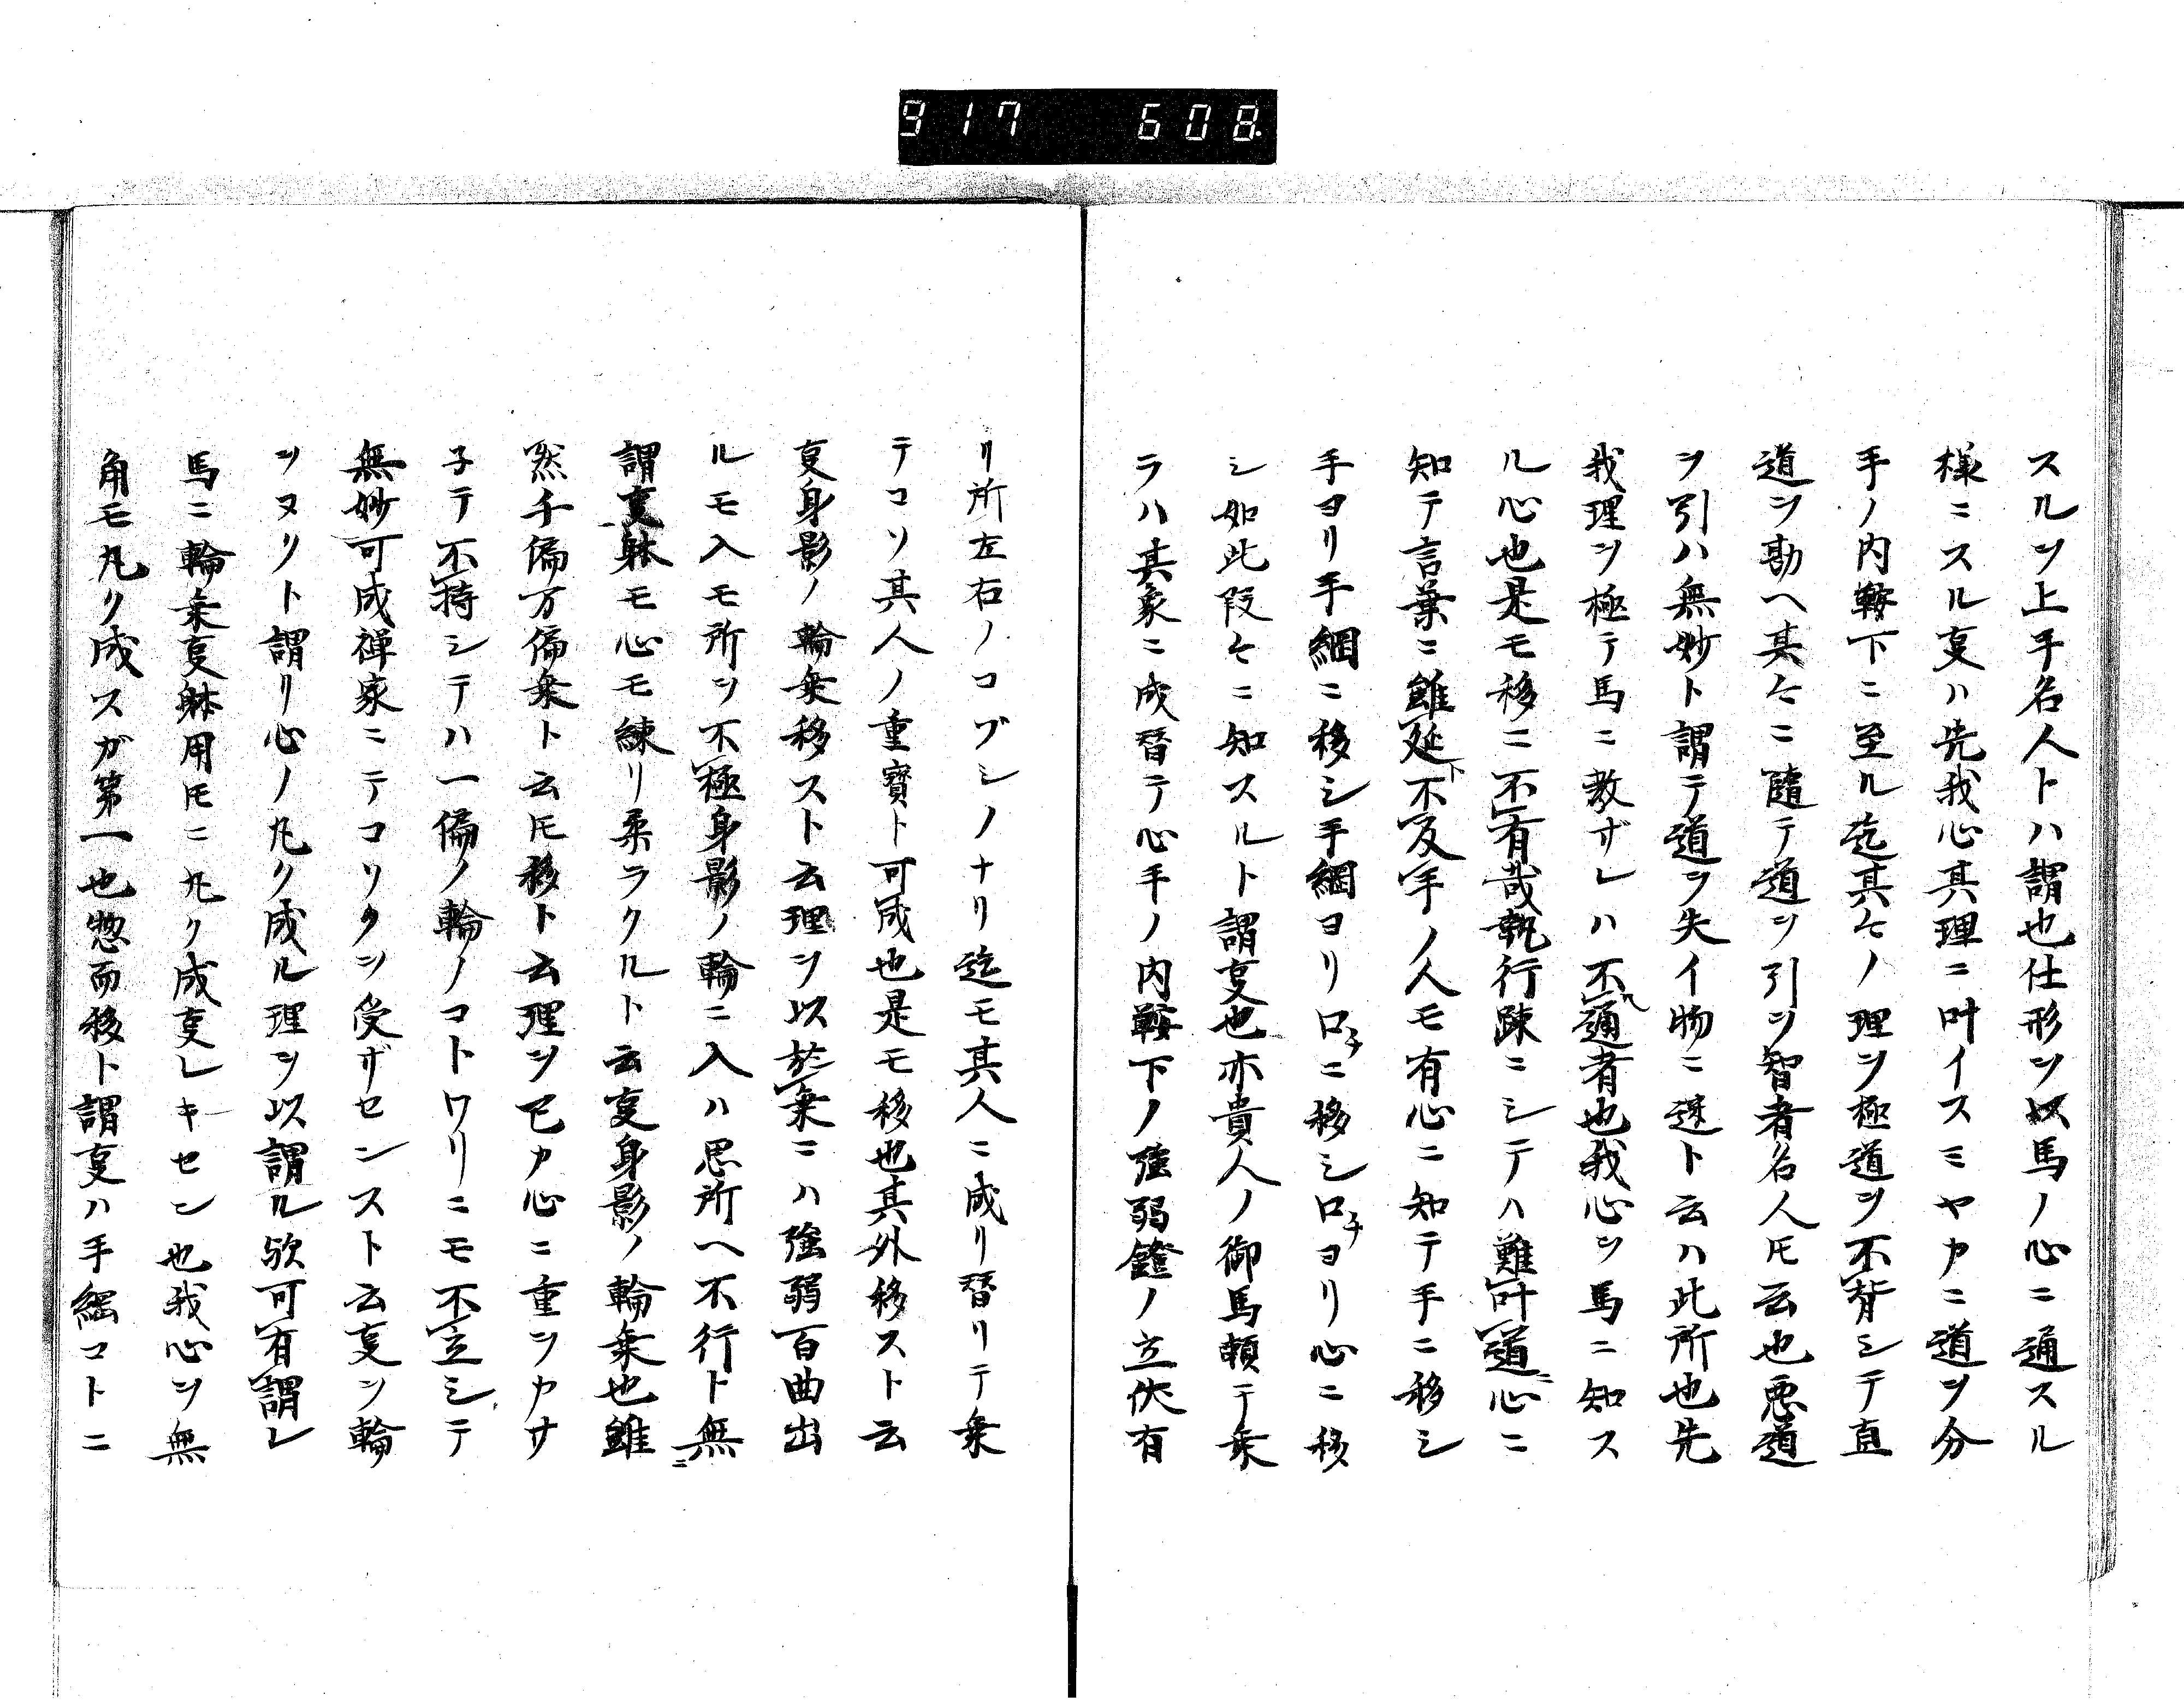 917 608.
スルヲ上手名人トハ謂也仕形ヲ以馬ノ心ニ通スル
様ニスル㕝ハ先我心其理ニ叶イスミヤカニ道ヲ分
手ノ内鞍下ニ至ル迄其々ノ理ヲ極道ヲ不背シテ直
道ヲ勘ヘ其々ニ随テ道ヲ引ヲ智者名人ト云也悪道
ヲ引ハ無妙ト謂テ道ヲ失イ物ニ迷ト云ハ此所也先
我理ヲ極テ馬ニ教ザレハ不通者也我心ヲ馬ニ知ス
ル心也是モ移ニ不有哉執行疎ニシテハ難叶道心ニ
知テ言葉ニ雖延ト不及手ノ人モ有心ニ知テ手ニ移シ
手ヨリ手綱ニ移シ手綱ヨリ口チニ移シ口チヨリ心ニ移
シ如此段々ニ知スルト謂㕝也亦貴人ノ御馬頼テ乗
ラハ其象ニ成替テ心手ノ内鞍下ノ強弱鐙ノ立伏有
リ所左右ノコブシノナリ迄モ其人ニ成リ替リテ乗
テコソ其人ノ重寳ト可成也是モ移也其外移スト云
㕝身影ノ輪乗移スト云理ヲ以於乗ニハ強弱百曲出
ルモ入モ所ヲ不極身影ノ輪ニ入ハ思所ヘ不行ト無
謂㕝躰モ心モ練リ柔ラクルト云㕝身影ノ輪乗也雖
然千偏万偏乗ト云𪜈移ト云理ヲ已カ心ニ重ヲカサ
子テ不持シテハ一偏ノ輪ノコトワリニモ不立シテ
無妙可成禅家ニテコソタヲ受ザセンスト云㕝ヲ輪
ヲヌリト謂リ心ノ丸ク成ル理ヲ以謂ル欤可有謂レ
馬ニ輪乗㕝躰用𪜈ニ丸ク成㕝レキセン也我心ヲ無
角モ丸ク成スガ第一也惣而移ト謂㕝ハ手綱コトニ